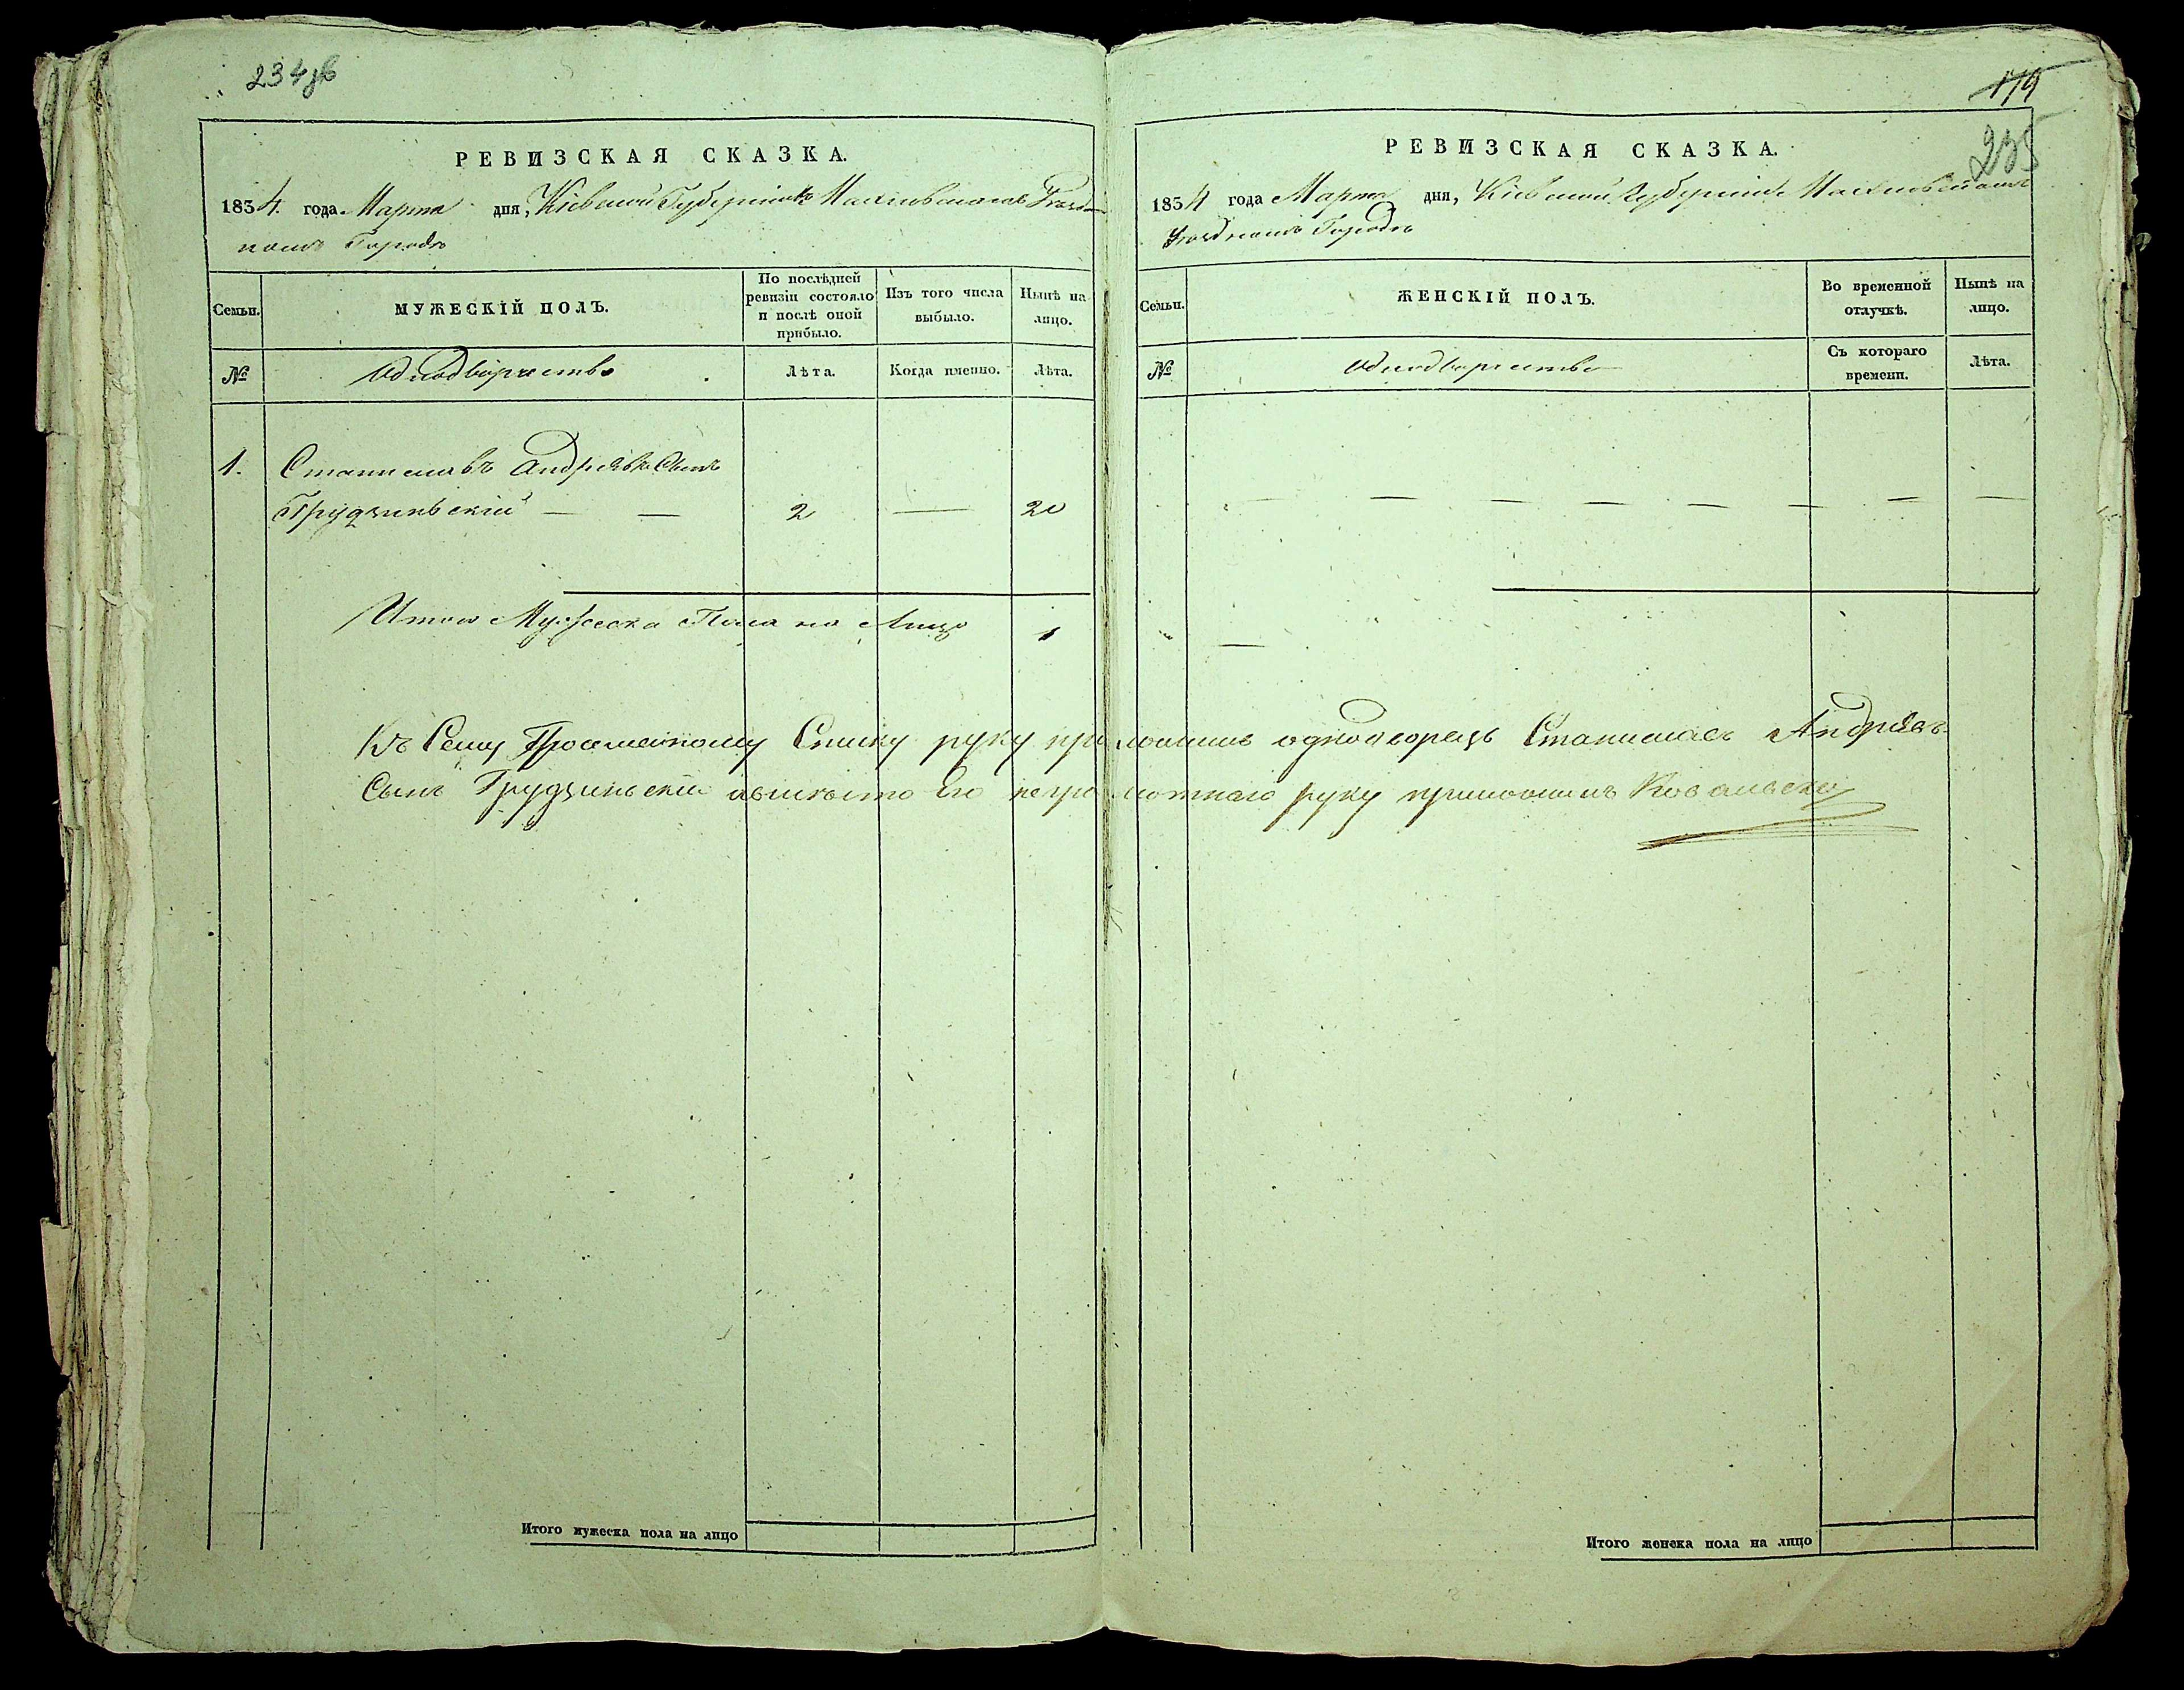 234 об
РЕВИЗСКАЯ СКАЗКА.
1834. года Марта дня, Кіевской Губерніи въ Махновскомъ Уезд-
номъ Городѣ
Семьи.
МУЖЕСКІЙ ПОЛЪ.
По послѣдней ревизіи состояло и послѣ оной прибыло.
Изъ того числа выбыло.
Нынѣ на лицо.
№
Однодворчество
Лѣта.
Когда именно.
Лѣта.
1. Станиславъ Андріевъ Сынъ
Грудзиньскій — — 2 — 20
Итого Мужеска Пола на Лицо 1
Итого мужеска пола на лицо
179
235
РЕВИЗСКАЯ СКАЗКА.
1834 года Марта дня, Кіевской Губерніи Махновскомъ
Уездномъ Городѣ
Семьи.
ЖЕНСКІЙ ПОЛЪ.
Во временной отлучкѣ.
Нынѣ на лицо.
№
Однодворчество
Съ котораго времени.
Лѣта.
— — — — — — — —
—
Къ Сему Списку руку приложилъ однодворецъ Станиславъ Андріевъ
Сынъ Грудзиньскій его неграмотнаго руку приложилъ Ковальскій
Итого женска пола на лицо